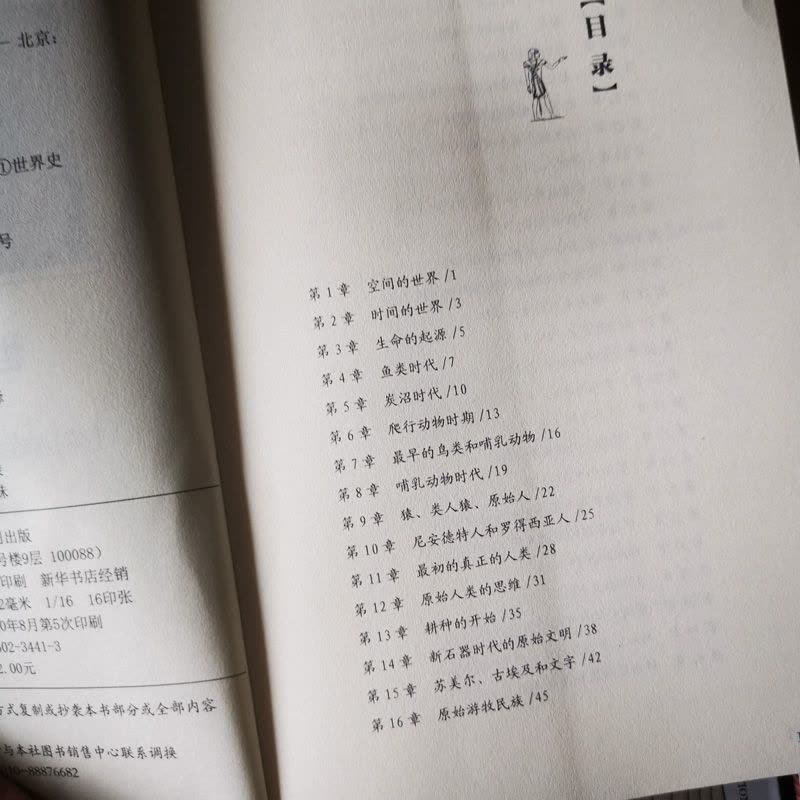 — 北京：
①世界史
号
出版
号楼9层 100088）
印刷 新华书店经销
2毫米 1/16 16印张
0年8月第5次印刷
502-3441-3
2.00元
方式复制或抄袭本书部分或全部内容
与本社图书销售中心联系调换
010-88876682
【目录】
第1章 空间的世界/1
第2章 时间的世界/3
第3章 生命的起源/5
第4章 鱼类时代/7
第5章 炭沼时代/10
第6章 爬行动物时期/13
第7章 最早的鸟类和哺乳动物/16
第8章 哺乳动物时代/19
第9章 猿、类人猿、原始人/22
第10章 尼安德特人和罗得西亚人/25
第11章 最初的真正的人类/28
第12章 原始人类的思维/31
第13章 耕种的开始/35
第14章 新石器时代的原始文明/38
第15章 苏美尔、古埃及和文字/42
第16章 原始游牧民族/45